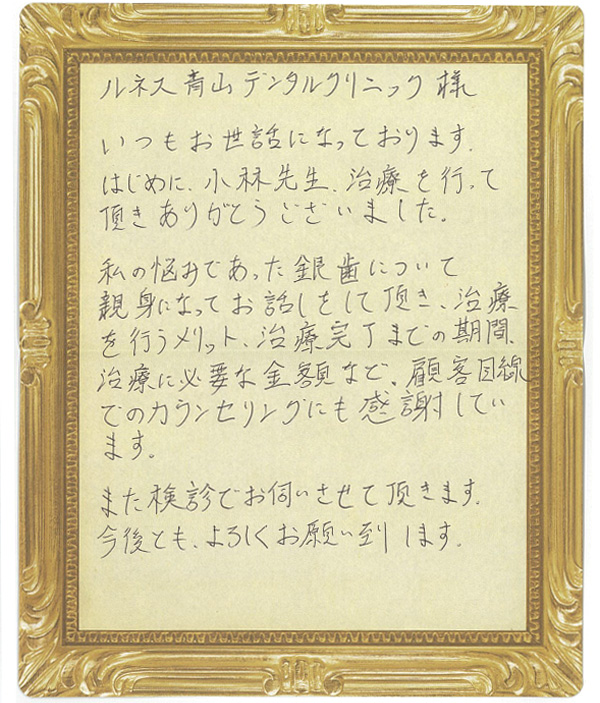 ルネス青山デンタルクリニック様
いつもお世話になっております。
はじめに、小林先生、治療を行って
頂きありがとうございました。
私の悩みであった銀歯について
親身になってお話しをして頂き、治療
を行うメリット、治療完了までの期間、
治療に必要な金額など、顧客目線
でのカウンセリングにも感謝してい
ます。
また検診でお伺いさせて頂きます。
今後とも、よろしくお願い到します。